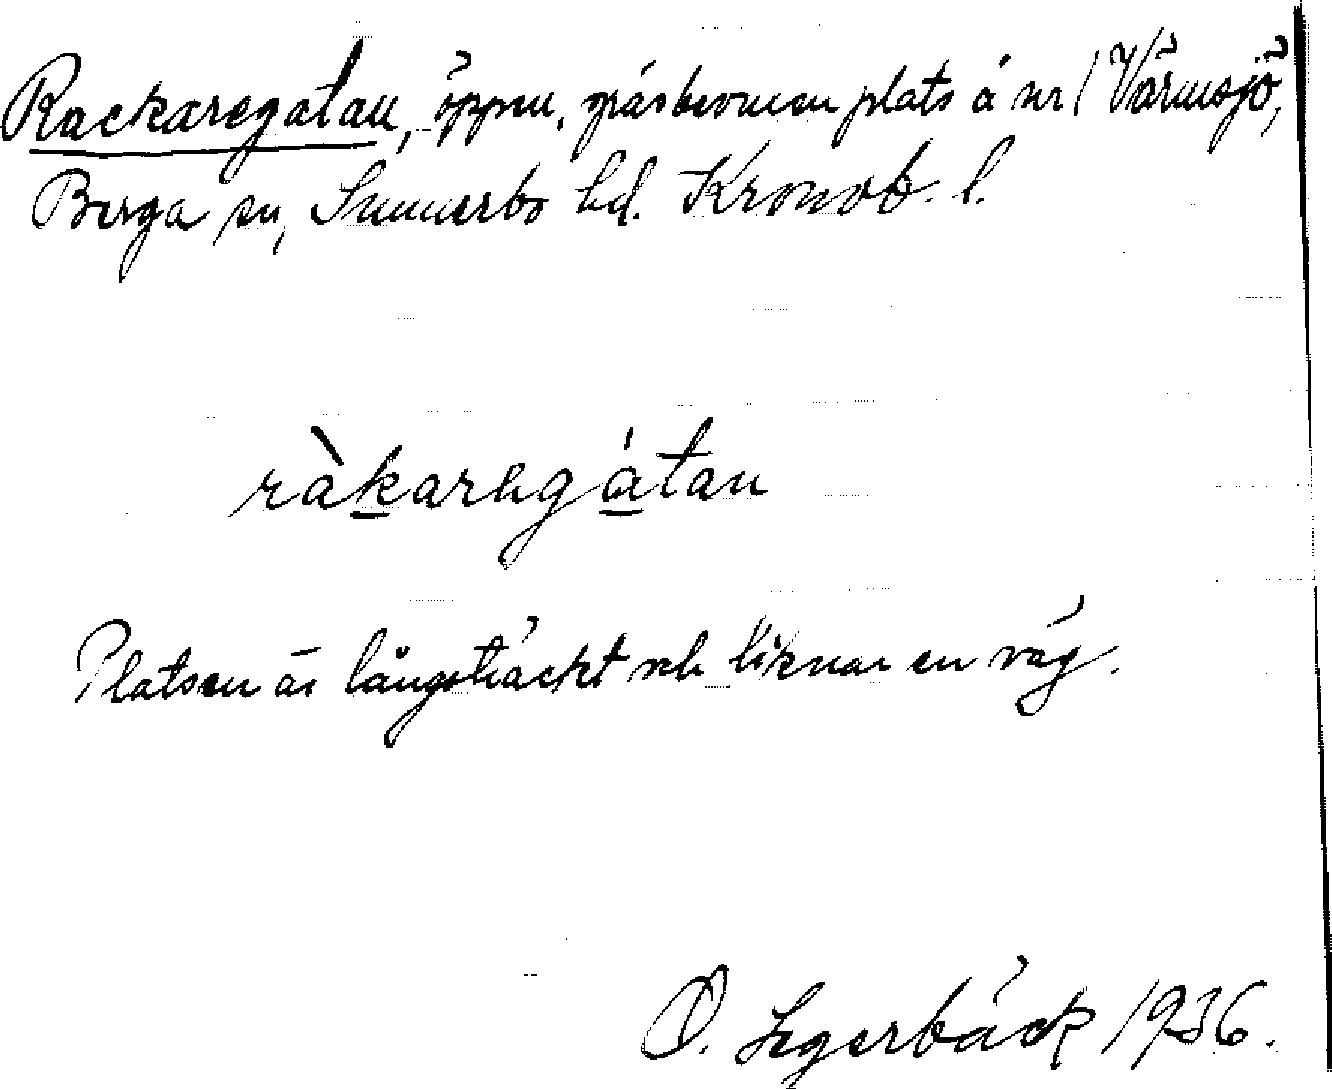 Rackaregatan, öppen, gräsbevuxen plats å nr 1 Värmsjö,
Berga sn, Sunnerbo hd. Kronob. l.
ràkaregátan
Platsen är långsträckt och liknar en väg.
O. Segerbäck 1936.